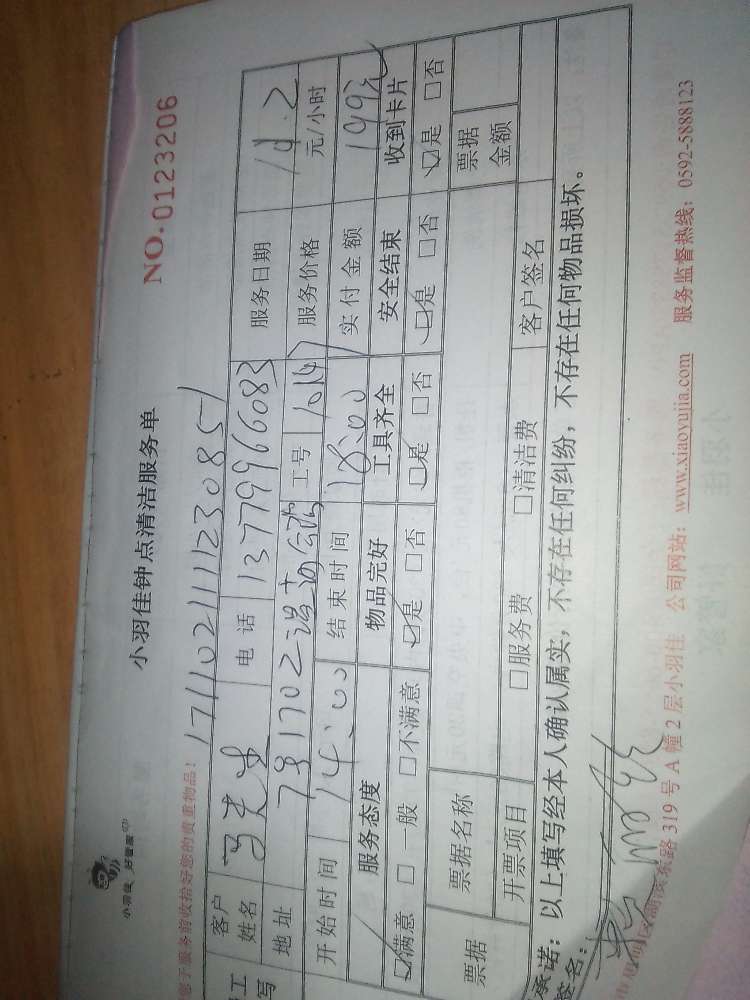 小羽佳 好管家
小羽佳钟点清洁服务单
NO.0123206
您于服务前收拾好您的贵重物品!
1711021111230851
客户姓名 马先生 电话 13779966083 服务日期 11.2
地址 7号1702 工号 10147 服务价格 元/小时
开始时间 14:00 结束时间 18:00 实付金额 199元
服务态度 物品完好 工具齐全 安全结束 收到卡片
☑满意 □一般 □不满意 ☑是 □否 ☑是 □否 ☑是 □否 ☑是 □否
票据 票据名称 票据金额
开票项目 □服务费 □清洁费 客户签名
承诺:以上填写经本人确认属实,不存在任何纠纷,不存在任何物品损坏。
签名:
路 319 号 A 幢 2 层小羽佳 公司网站:www.xiaoyujia.com 服务监督热线:0592-5888123